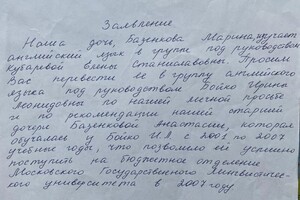 Заявление
Наша дочь, Базенкова Марина, изучает
английский язык в группе под руководством
Кубаревой Елены Станиславовны. Просим
Вас перевести ее в группу английского
языка под руководством Бойко Ирины
Леонидовны по нашей личной просьбе
и по рекомендации нашей старшей
дочери Базенковой Анастасии, которая
обучалась у Бойко И.Л с 2001 по 2007
учебные годы, что позволило ей успешно
поступить на бюджетное отделение
Московского Государственного Лингвистичес-
кого университета в 2007 году